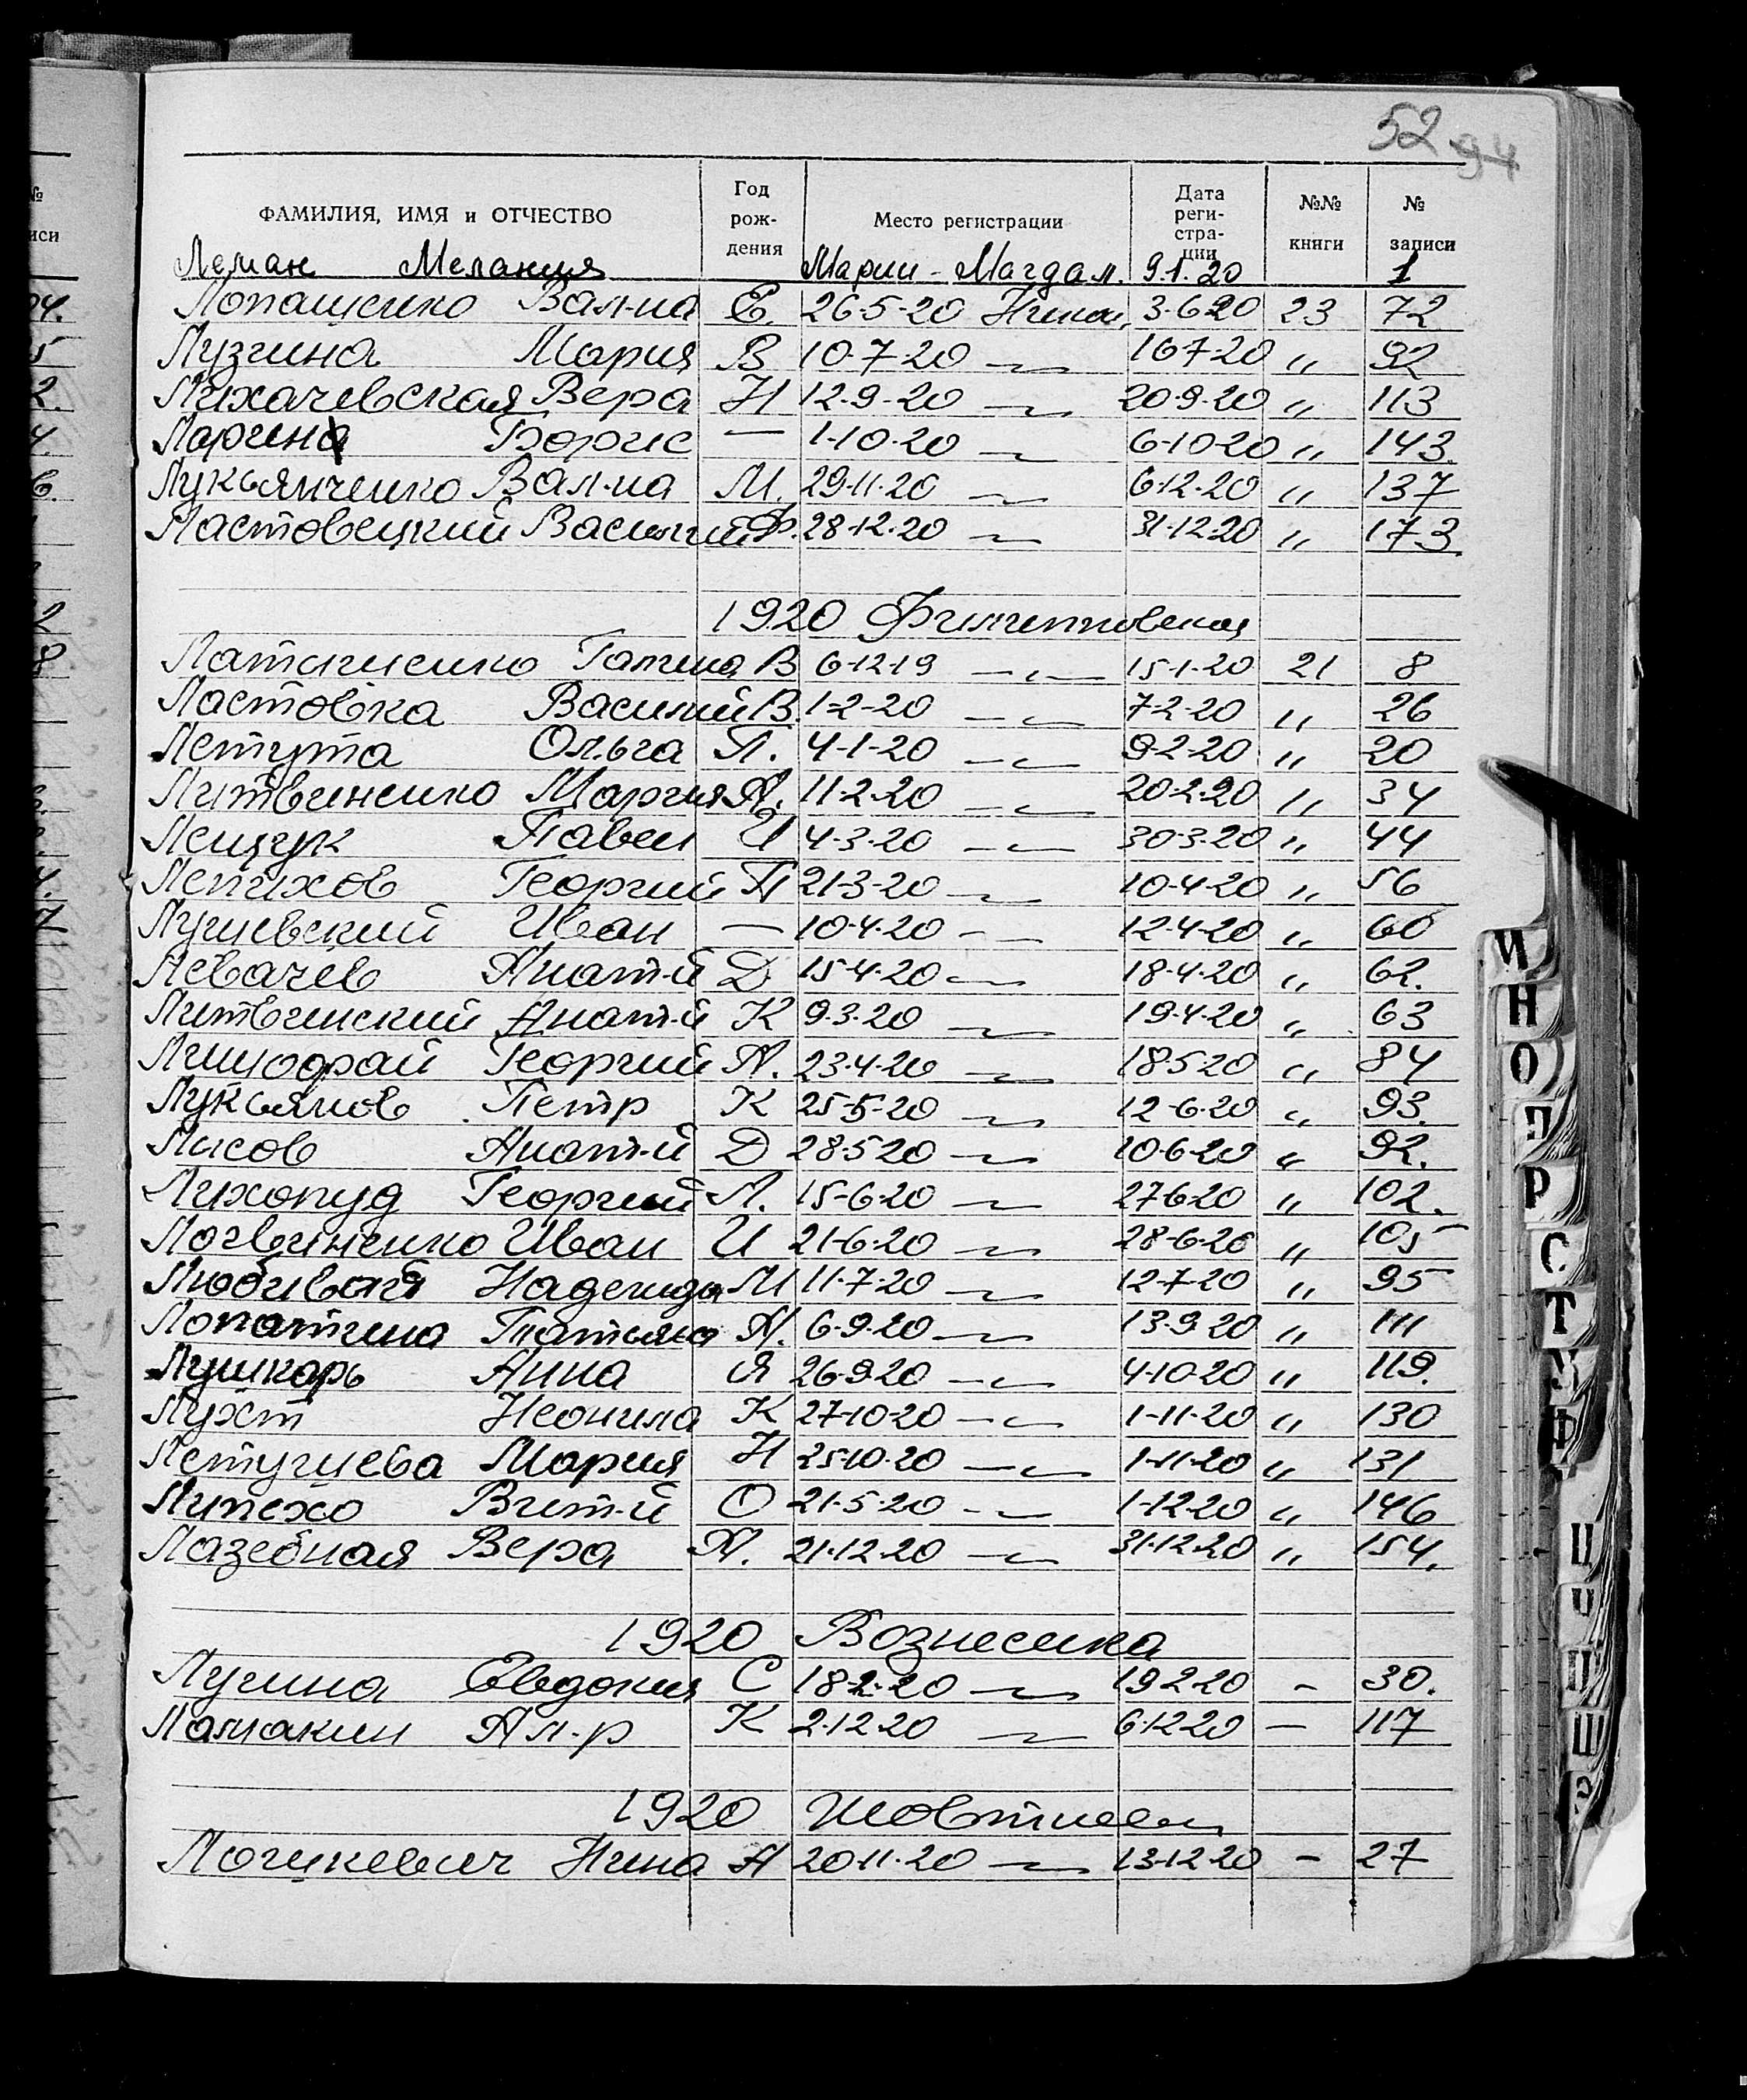 52 94
ФАМИЛИЯ, ИМЯ и ОТЧЕСТВО Год рож- дения Место регистрации Дата реги- стра- ции №№ книги № записи
Леман Мелания Марии-Магдал. 9.1.20 1
Лопащенко Вал-на Е. 26-5-20 Никол. 3-6-20 23 72
Лузгина Мария В 10-7-20 —〃— 16-7-20 〃 92
Лихачевская Вера Н 12-9-20 —〃— 20-9-20 〃 113
Ларин Борис — 1-10-20 —〃— 6-10-20 〃 143.
Лукьянченко Вал-на М. 29-11-20 —〃— 6-12-20 〃 137
Ластовецкий Василий Ф. 28-12-20 —〃— 31-12-20 〃 173.
1920 Филипповская
Галина В 6-12-19 —〃— 15-1-20 21 8
Ластовка Василий В. 1-2-20 —〃— 7-2-20 〃 26
Летута Ольга П. 4-1-20 —〃— 9-2-20 〃 20
Литвиненко Мария А. 11-2-20 —〃— 20-2-20 〃 34
Лещук Павел И 4-3-20 —〃— 30-3-20 〃 44
Лепихов Георгий П 21-3-20 —〃— 10-4-20 〃 56
Иван — 10-4-20 —〃— 12-4-20 〃 60
Левачев Анат-й Д 15-4-20 —〃— 18-4-20 〃 62.
Литвинский Анат-й К 9-3-20 —〃— 19-4-20 〃 63
Георгий А. 23-4-20 —〃— 18-5-20 〃 84
Лукьянов Петр К 25-5-20 —〃— 12-6-20 〃 93.
Лысов Анат-й Д 28-5-20 —〃— 10-6-20 〃 92.
Лихопуд Георгий Л. 15-6-20 —〃— 27-6-20 〃 102.
Логвиненко Иван И 21-6-20 —〃— 28-6-20 〃 105
Надежда М 11-7-20 —〃— 12-7-20 〃 95
Лопатина Татьяна А. 6-9-20 —〃— 13-9-20 〃 111
Лушкарь Анна Я 26-9-20 —〃— 4-10-20 〃 119.
Лухт Неонила К 27-10-20 —〃— 1-11-20 〃 130
Летучиева Мария Н 25-10-20 —〃— 1-11-20 〃 131
Липехо Вит-й О 21-5-20 —〃— 1-12-20 〃 146
Лазебная Вера А. 21-12-20 —〃— 31-12-20 〃 154.
1920 Вознесенка
Лугина Евдокия С 18-2-20 —〃— 19-2-20 — 30.
Ломакин Ал-р К 2-12-20 —〃— 6-12-20 — 117
1920
Нина А 20-11-20 —〃— 13-12-20 — 27
И
Н
О
П
Р
С
Т
У
Ф
Ц
Ч
Ш